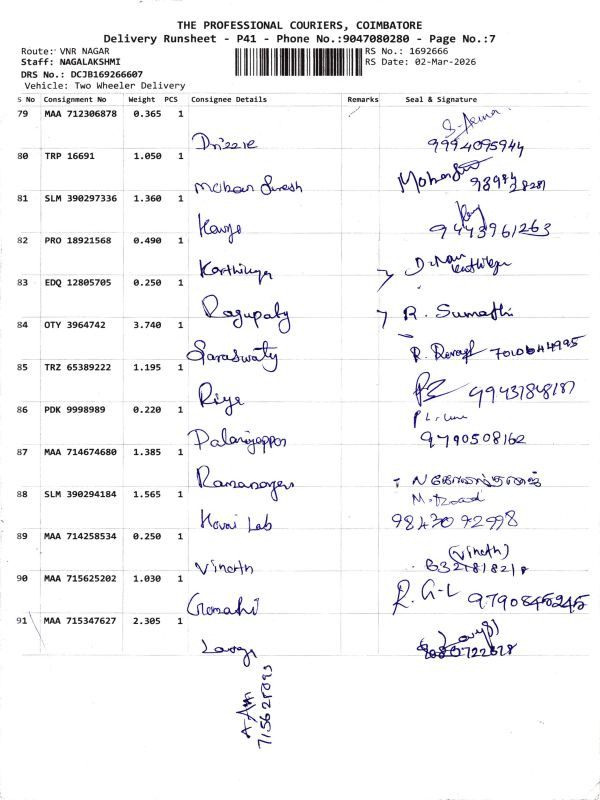 THE PROFESSIONAL COURIERS, COIMBATORE
Delivery Runsheet - P41 - Phone No.:9047080280 - Page No.:7
Route: VNR NAGAR RS No.: 1692666
Staff: NAGALAKSHMI RS Date: 02-Mar-2026
DRS No.: DCJB169266607
Vehicle: Two Wheeler Delivery
S No Consignment No Weight PCS Consignee Details Remarks Seal & Signature
79 MAA 712306878 0.365 1
9994095944
80 TRP 16691 1.050 1
Mohan Suresh
81 SLM 390297336 1.360 1
9443961263
82 PRO 18921568 0.490 1
Karthikeya
83 EDQ 12805705 0.250 1
Ragupaty R. Sumathi
84 OTY 3964742 3.740 1
Saraswaty R. 7010644995
85 TRZ 65389222 1.195 1
Riya
86 PDK 9998989 0.220 1
Palaniyappan 9790508162
87 MAA 714674680 1.385 1
88 SLM 390294184 1.565 1
Kovai Lab 98430 92998
89 MAA 714258534 0.250 1
(Vinoth)
Vinoth 6321818218
90 MAA 715625202 1.030 1
Gomathi R. G-L 9790845245
91 MAA 715347627 2.305 1